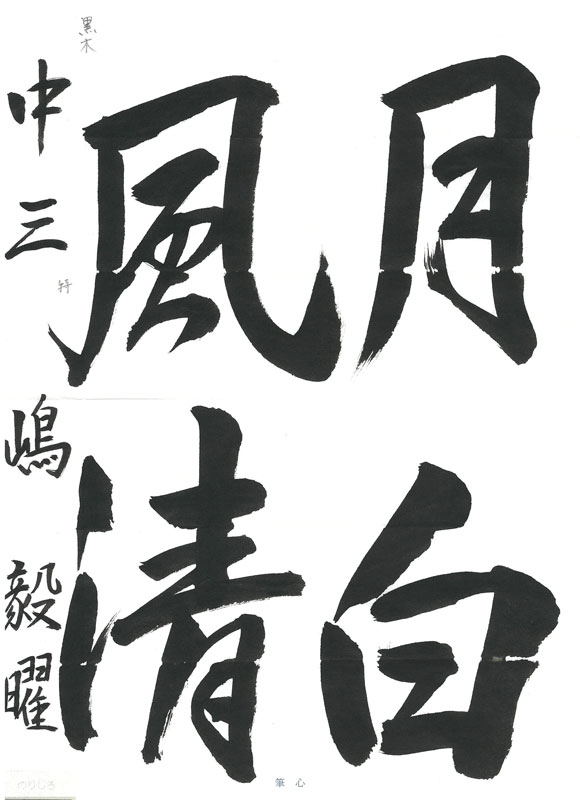 月白
風清
中三
嶋毅曜
黒木
特
筆心
のりしろ